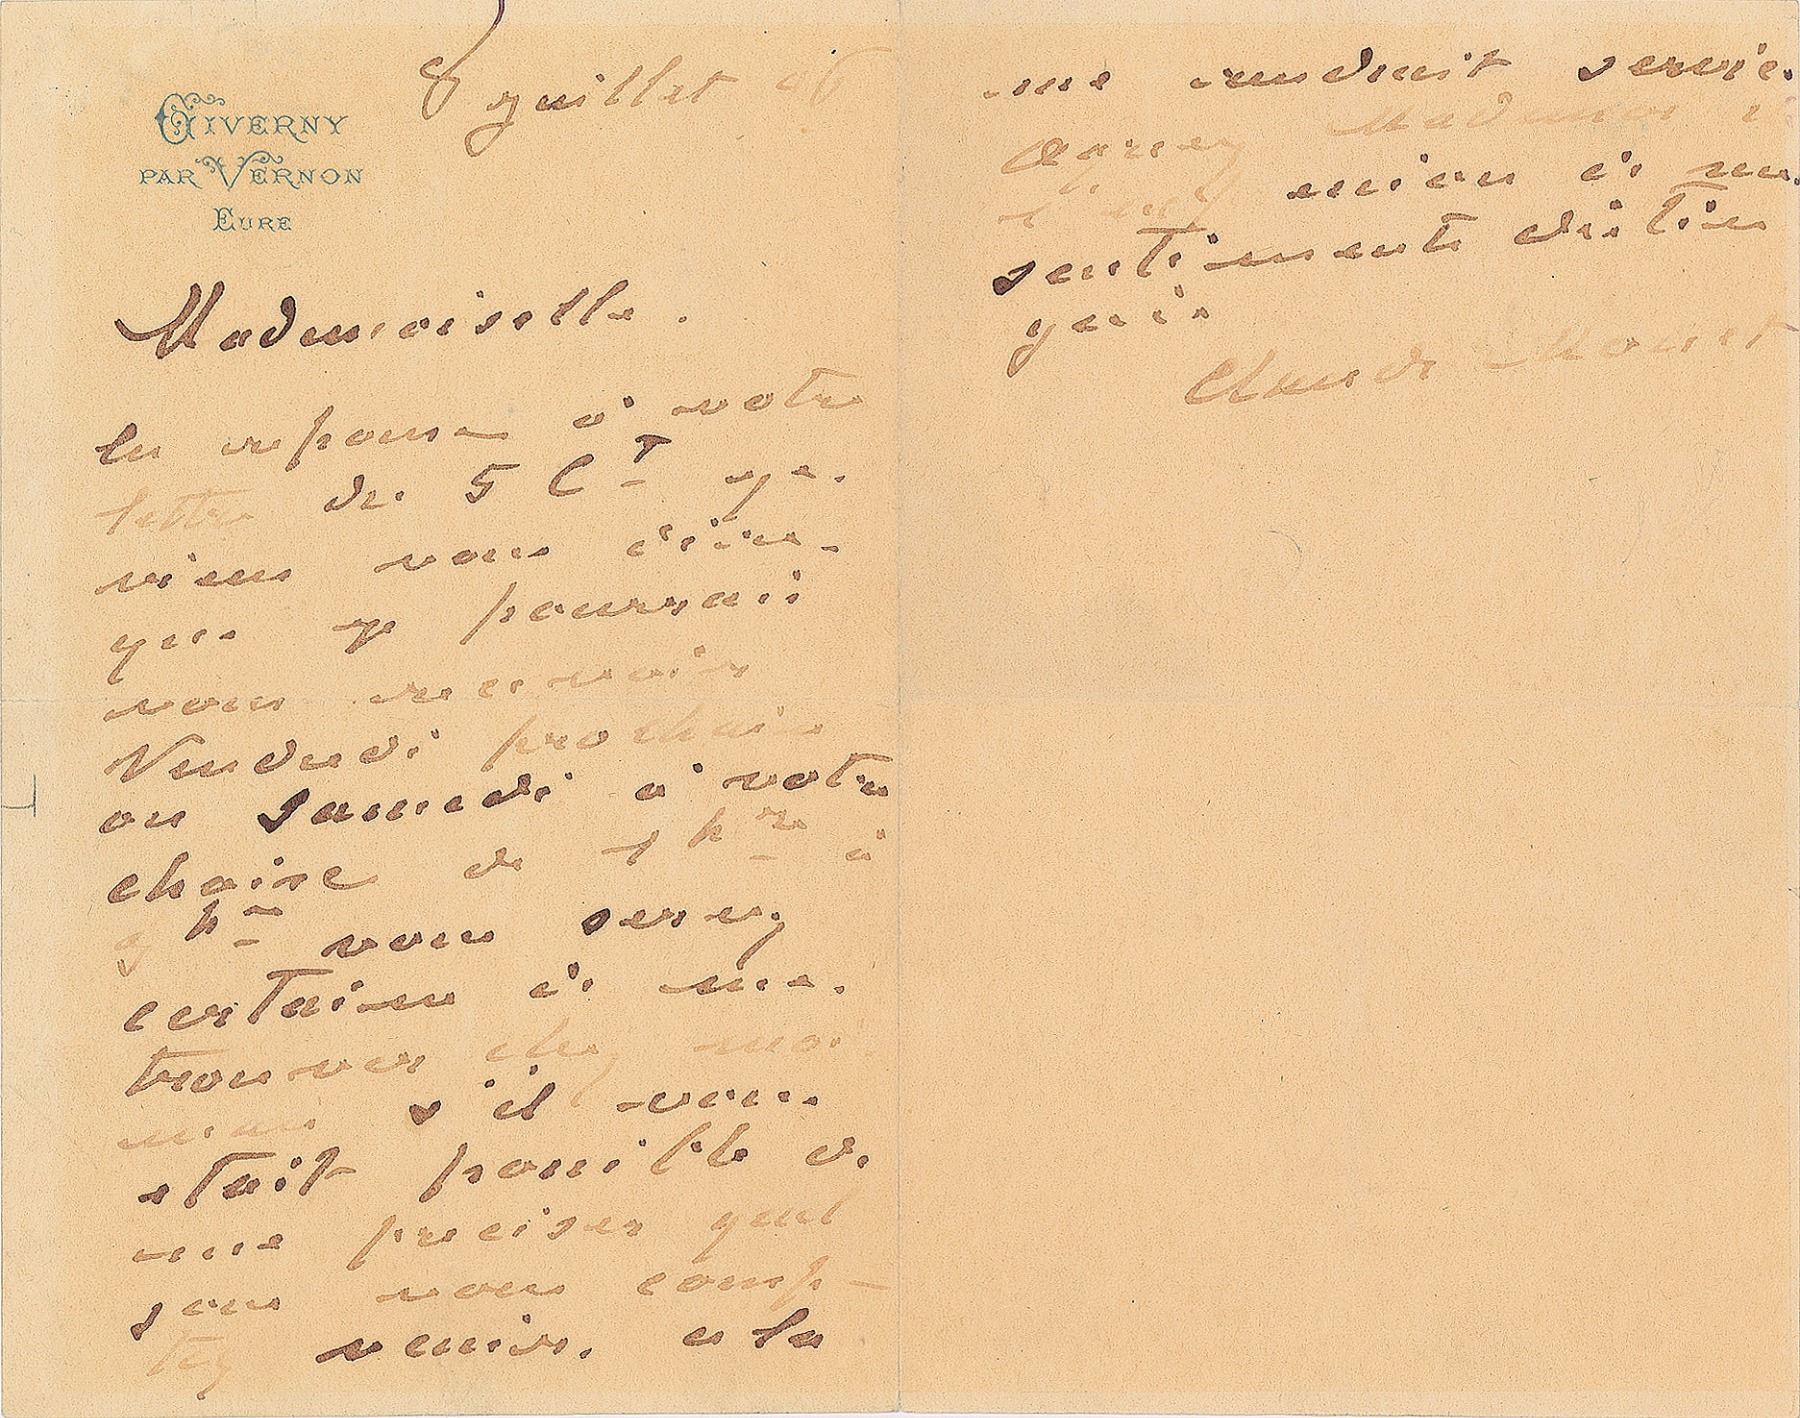 GIVERNY
PAR VERNON
EURE
8 juillet 96
Mademoiselle.
En reponse à votre
lettre de 5 Ct je
viens vous dire
que je pourrais
vous recevoir
Vendredi prochain
ou samedi à votre
choix de 1 hre à
hres vous serez
certaine de me
trouver chez moi
mais s'il vous
etait possible de
me preciser quel
jour vous comp-
tez venir. cela
me rendrait service.
Agréez Mademoi
selle mes
sentiments distin
gués
Claude Monet